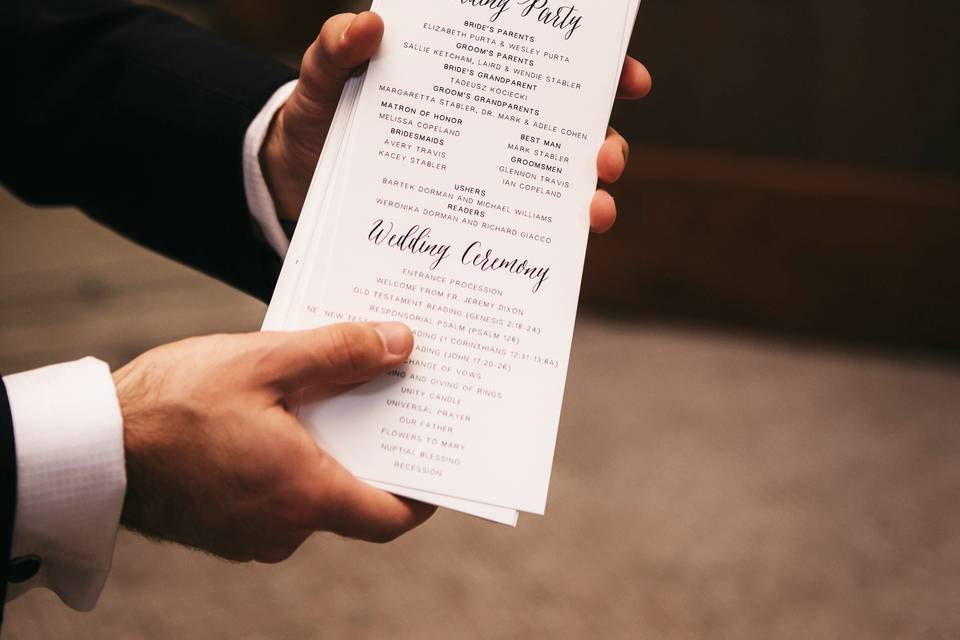 Party
BRIDE'S PARENTS
ELIZABETH PURTA & WESLEY PURTA
GROOM'S PARENTS
SALLIE KETCHAM, LAIRD & WENDIE STABLER
BRIDE'S GRANDPARENT
TADEUSZ KOCIECKI
GROOM'S GRANDPARENTS
MARGARETTA STABLER, DR. MARK & ADELE COHEN
MATRON OF HONOR
MELISSA COPELAND
BRIDESMAIDS
AVERY TRAVIS
KACEY STABLER
BEST MAN
MARK STABLER
GROOMSMEN
GLENNON TRAVIS
IAN COPELAND
USHERS
BARTEK DORMAN AND MICHAEL WILLIAMS
READERS
WERONIKA DORMAN AND RICHARD GIACCO
Wedding Ceremony
ENTRANCE PROCESSION
WELCOME FROM FR. JEREMY DIXON
OLD TESTAMENT READING (GENESIS 2:18-24)
RESPONSORIAL PSALM (PSALM 128)
NE NEW TEST ADING (1 CORINTHIANS 12:31-13:8A)
ADING (JOHN 17:20-26)
CHANGE OF VOWS
ING AND GIVING OF RINGS
UNITY CANDLE
UNIVERSAL PRAYER
OUR FATHER
FLOWERS TO MARY
NUPTIAL BLESSING
RECESSION